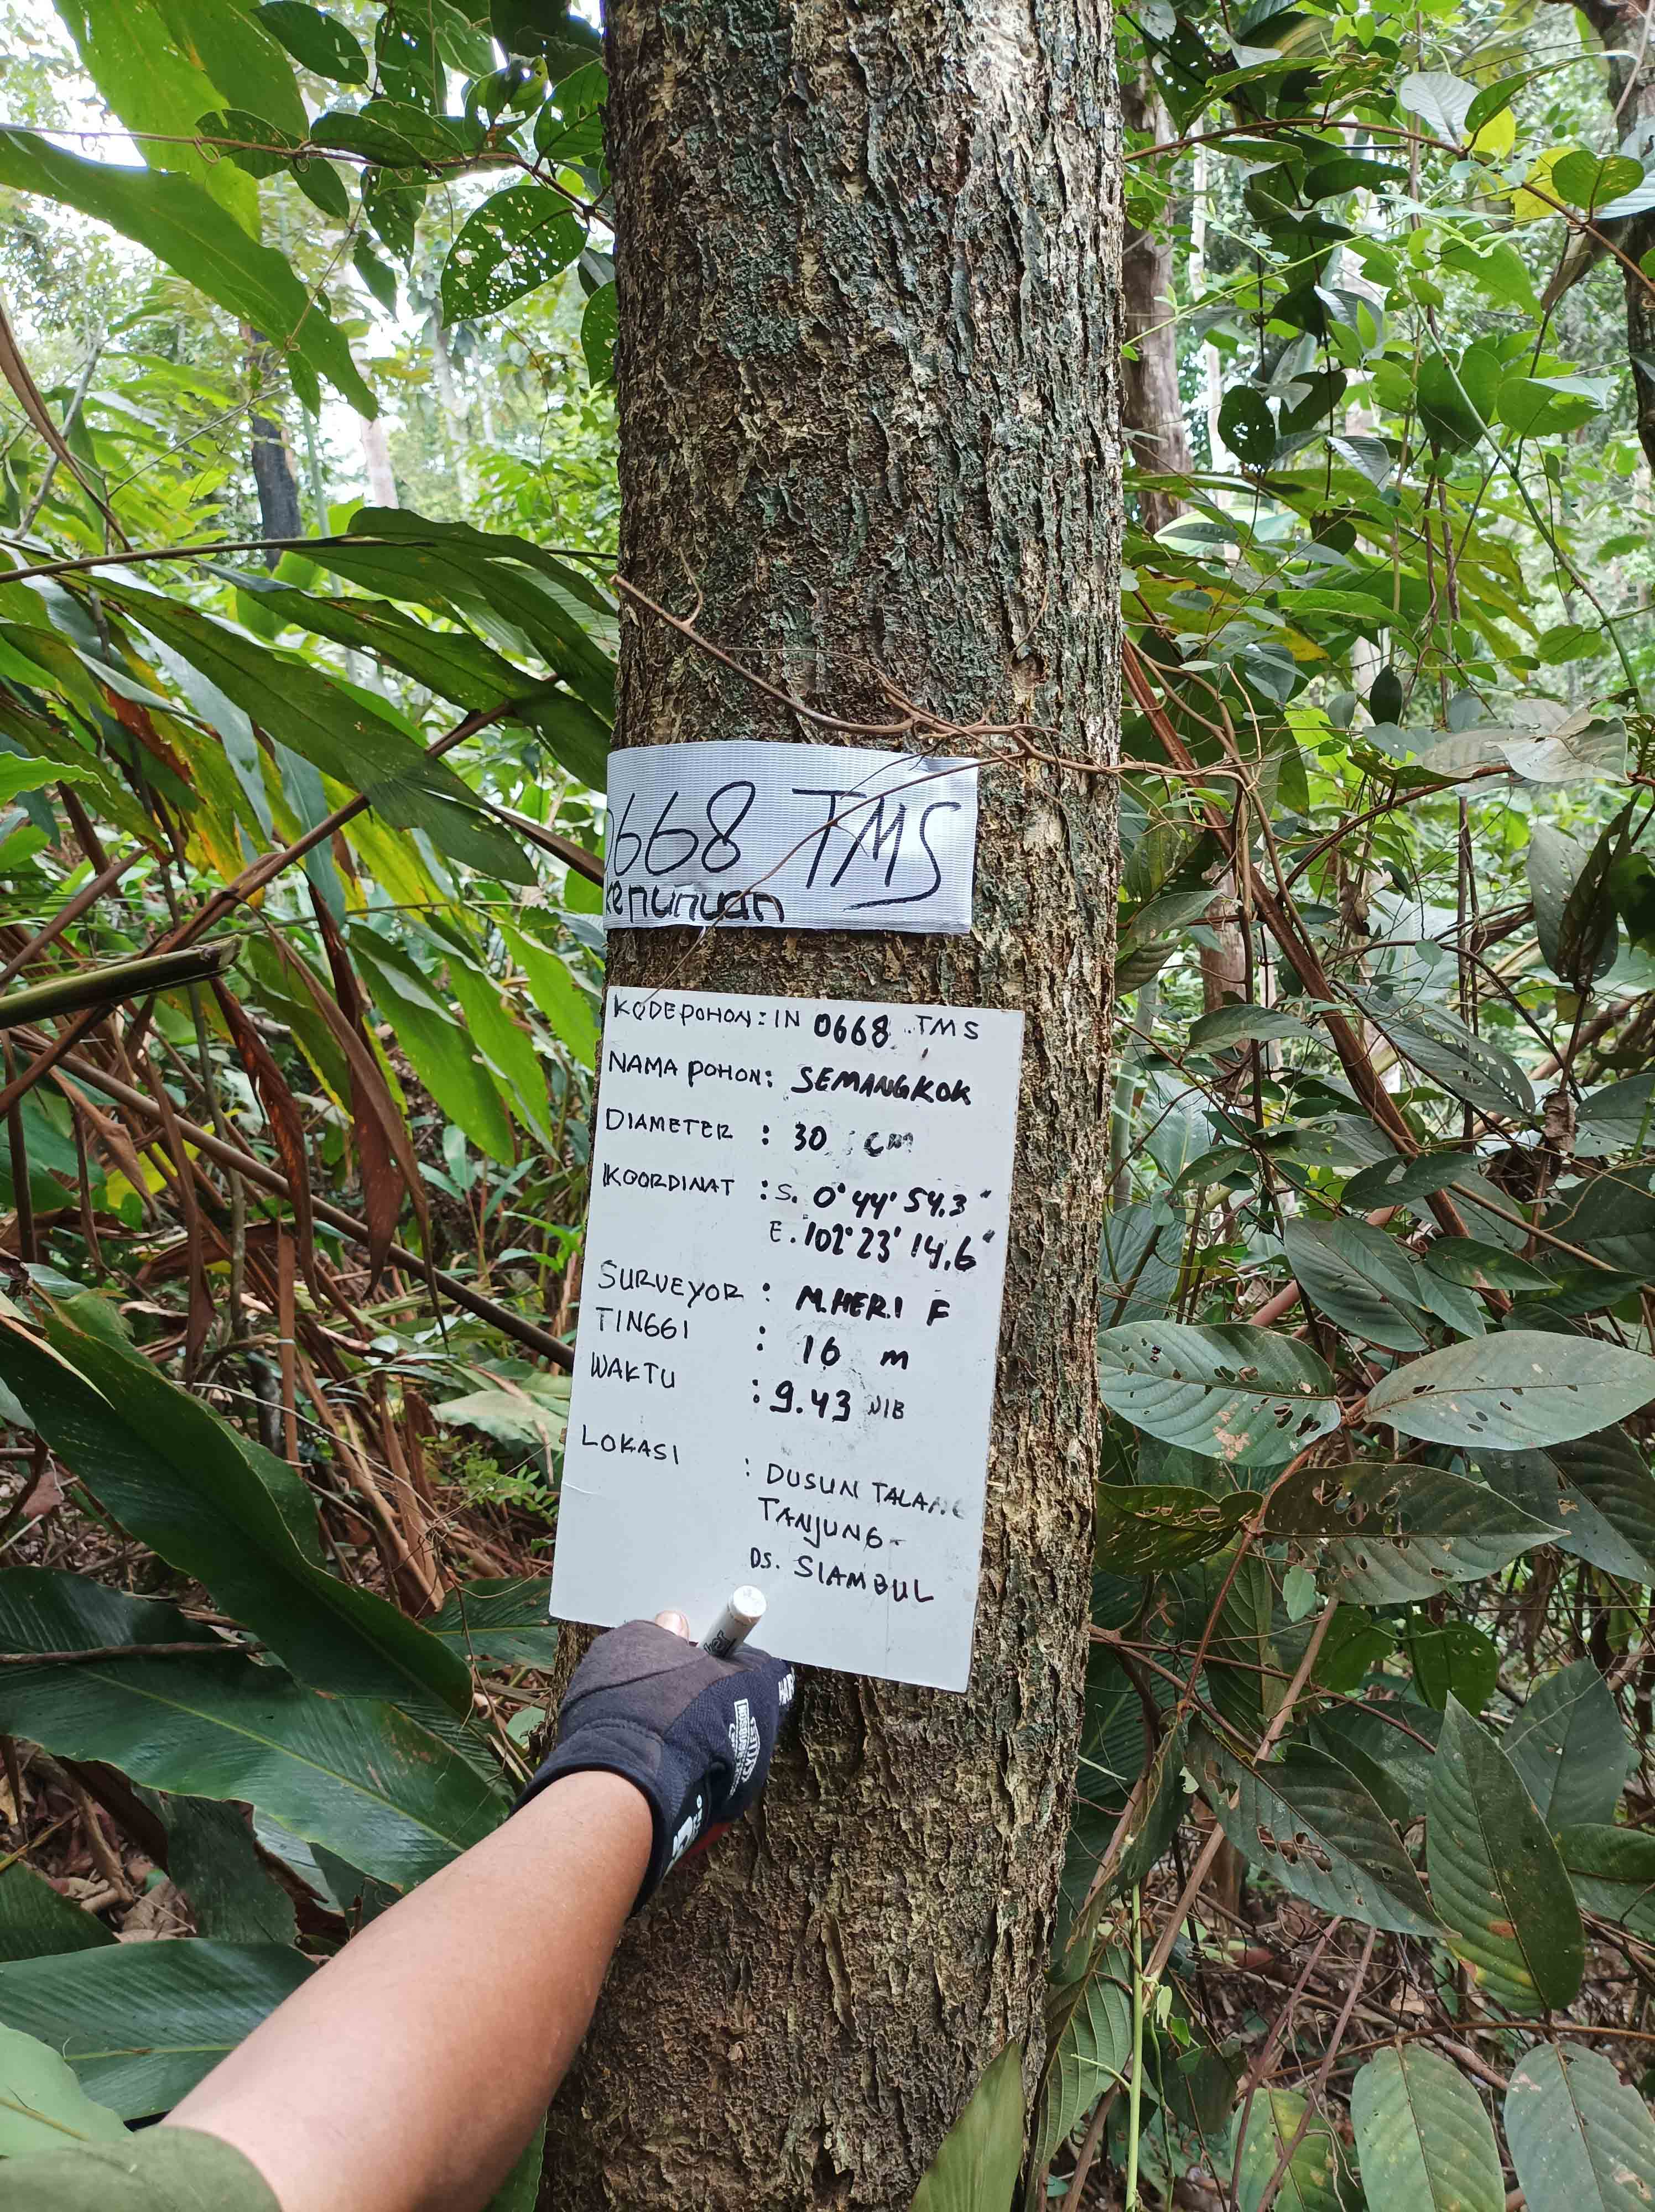 0668 TMS
KODE POHON: IN 0668 TMS
NAMA POHON: SEMANGKOK
DIAMETER : 30 CM
KOORDINAT : S. 0° 44' 54.3"
E. 102° 23' 14.6"
SURVEYOR : M.HERI F
TINGGI : 16 m
WAKTU : 9.43 WIB
LOKASI : DUSUN TALANG
TANJUNG-
DS. SIAMBUL